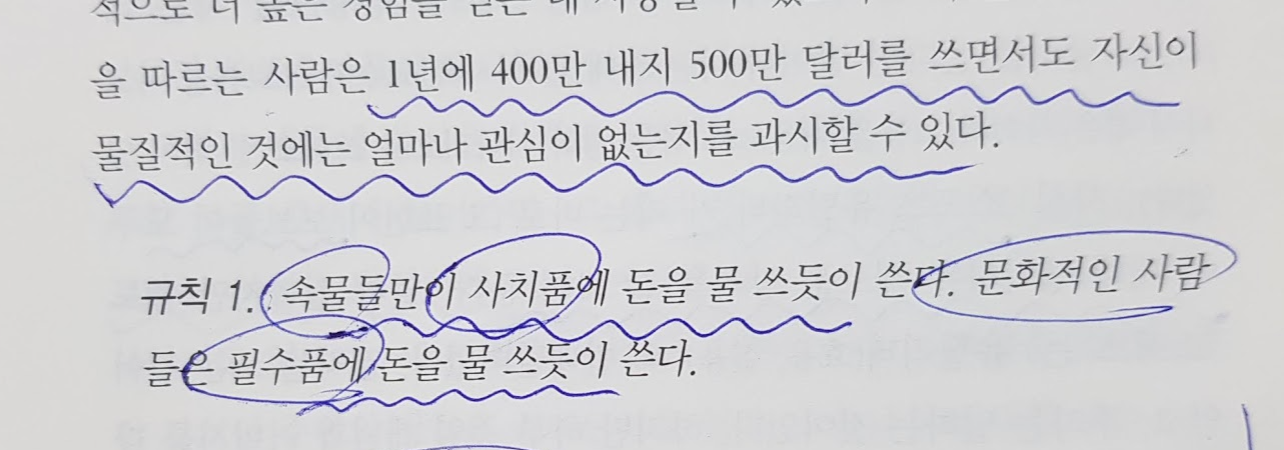 을 따르는 사람은 1년에 400만 내지 500만 달러를 쓰면서도 자신이
물질적인 것에는 얼마나 관심이 없는지를 과시할 수 있다.
규칙 1. 속물들만이 사치품에 돈을 물 쓰듯이 쓴다. 문화적인 사람
들은 필수품에 돈을 물 쓰듯이 쓴다.